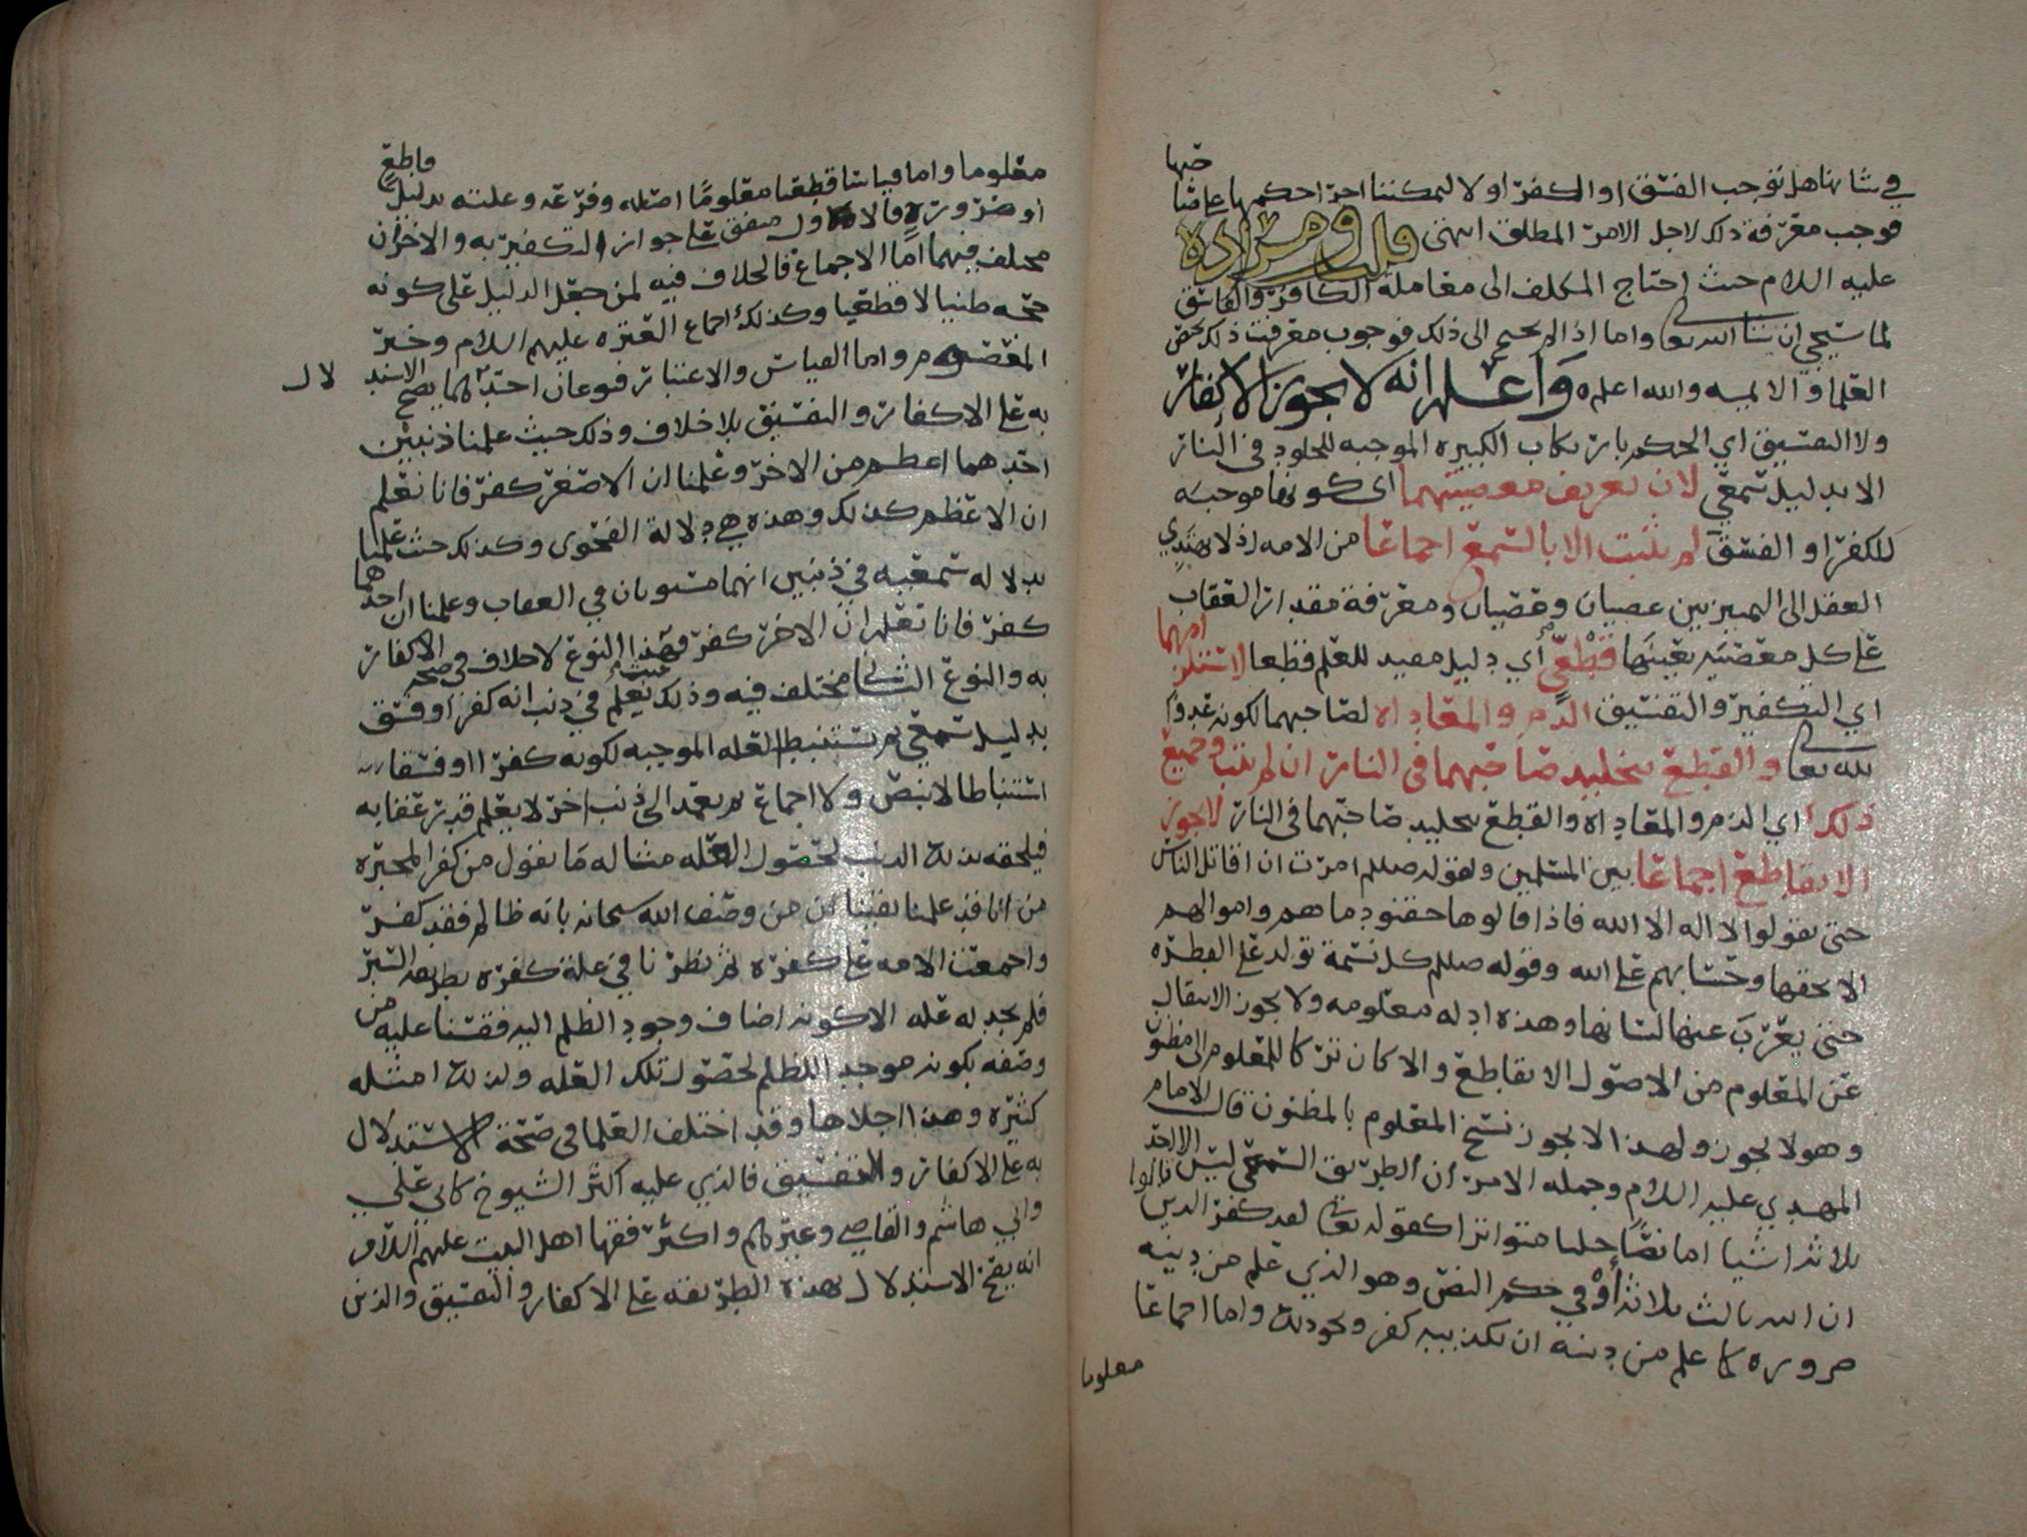 في شانها هل توجب الفسق او الكفر او لا ليمكننا اجرا احكامها على صاحبها
فوجب معرفة ذلك لاجل الامر المطلق انتهى قلت ومراده
عليه السلام حيث احتاج المكلف الى معاملة الكافر والفاسق
لما سيجي ان شا الله تعالى واما اذا لم يحتج الى ذلك فوجوب معرفة ذلك يخص
العلما والايمة والله اعلم ه واعلم انه لا يجوز الاكفار
ولا التفسيق اي الحكم بارتكاب الكبيره الموجبه للخلود في النار
الا بدليل سمعي لان تعريف معصيتهما اي كونها موجبه
للكفر او الفسق لم يثبت الا بالسمع اجماعا من الامه اذ لا يهتدي
العقل الى التمييز بين عصيان وعصيان ومعرفة مقدار العقاب
على كل معصيه بعينها قطعي أي دليل مفيد للعلم قطعا لاستلزامهما
اي التكفير والتفسيق الذم والمعاداه لصاحبهما لكونه عدوا
لله تعالى والقطع بتخليد صاحبهما في النار ان لم يتب وجميع
ذلك اي الذم والمعاداه والقطع بتخليد صاحبهما في النار لا يجوز
الا بقاطع اجماعا بين المسلمين ولقوله صللم امرت ان اقاتل الناس
حتى يقولوا لا اله الا الله فاذا قالوها حقنو دماهم واموالهم
الا بحقها وحسابهم على الله وقوله صللم كل نسمة تولد على الفطره
حتى يعرب عنها لسانها وهذه ادله معلومه ولا يجوز الانتقال
عن المعلوم من الاصول الا بقاطع والا كان تركا للمعلوم الى المظنون
وهو لا يجوز ولهذا لا يجوز نسخ المعلوم بالمظنون قال الامام
المهدي عليه السلام وجمله الامر ان الطريق السمعي ليس الا احد
ثلاثه اشيا اما نصا جليا متواترا كقوله تعالى لقد كفر الذين قالوا
ان الله ثالث ثلاثه أو في حكم النص وهو الذي علم من دينه
ضروره كما علم من دينه ان تكذيبه كفر ونحو ذلك واما اجماعا
معلوما
معلوما واما قياسا قطعيا معلومًا اصله وفرعه وعلته بدليل قاطع
او ضرورة فالاول متفق على جواز التكفير به والاخران
مختلف فيهما اما الاجماع فالخلاف فيه لمن جعل الدليل على كونه
حجه ظنيا لا قطعيا وكذلك اجماع العتره عليهم السلام وخبر
المعصوم واما القياس والاعتبار فنوعان احدهما يصح الاستدلال
به على الاكفار والتفسيق بلا خلاف وذلك حيث علمنا ذنبين
احدهما اعظم من الاخر وعلمنا ان الاصغر كفر فانا نعلم
ان الاعظم كذلك وهذه هي دلالة الفحوى وكذلك حيث علمنا
بدلاله سمعيه في ذنبين انهما مستويان في العقاب وعلمنا ان احدهما
كفر فانا نعلم ان الاخر كفر فهذا النوع لا خلاف في صحة الاكفار
به والنوع الثاني مختلف فيه وذلك حيث يعلم في ذنب انه كفر او فسق
بدليل سمعي ثم تستنبط العله الموجبه لكونه كفرا او فسقا
استنباطا لا بنص ولا اجماع ثم يعمد الى ذنب اخر لا يعلم قدر عقابه
فيلحقه بذلك الذنب لحصول العله مثاله ما نقول من كفر المجبره
من انا قد علمنا يقينا ان من وصف الله سبحانه بانه ظالم فقد كفر
واجمعت الامه على كفره ثم نظرنا في علة كفره بطريقه السبر
فلم نجد له عله الا كونه اضاف وجود الظلم اليه فقسنا عليه من
وصفه بكونه موجد الظلم لحصول تلك العله ولذلك امثله
كثيره وهذا اجلاها وقد اختلف العلما في صحة الاستدلال
به على الاكفار والتفسيق فالذي عليه اكثر الشيوخ كابي علي
وابي هاشم والقاضي وغيرهم واكثر فقها اهل البيت عليهم السلام
انه يصح الاستدلال بهذه الطريقه على الاكفار والتفسيق والذين